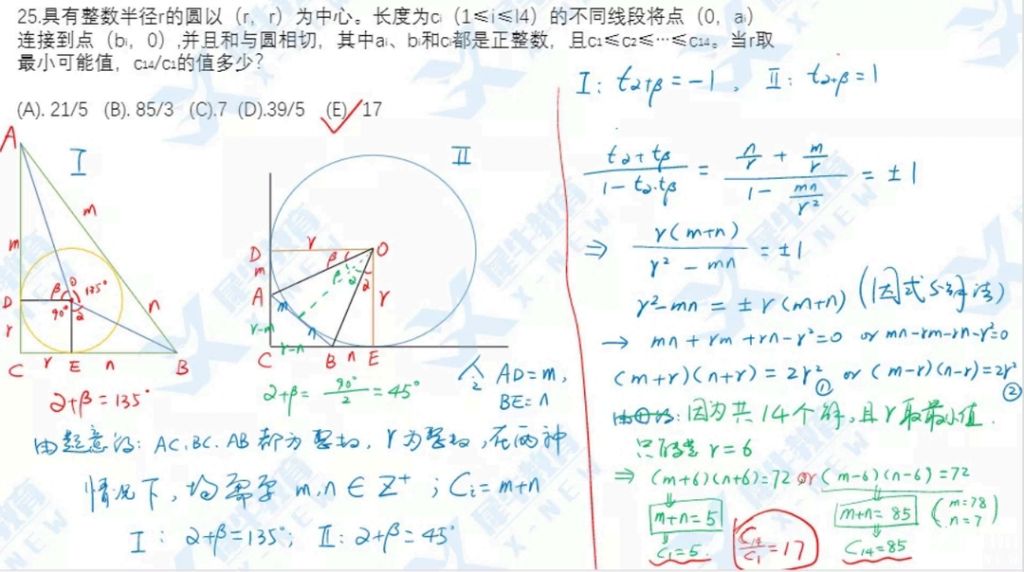 25.具有整数半径r的圆以（r，r）为中心。长度为cᵢ（1≤i≤l4）的不同线段将点（0，aᵢ）
连接到点（bᵢ，0）,并且和与圆相切，其中aᵢ、bᵢ和cᵢ都是正整数，且c₁≤c₂≤…≤c₁₄。当r取
最小可能值，c₁₄/c₁的值多少?
(A). 21/5 (B). 85/3 (C).7 (D).39/5 (E). 17
A
I
m
m
D
β
O
135°
90°
2
n
r
C
r
E
n
B
2+β=135°
II
D
r
O
β
β
2
2
m
A
m
r
r-m
n
r-n
C
B
n
E
2+β= 90°/2 =45°
令 AD=m,
BE=n
由题意得: AC.BC.AB都为整数, r为整数, 在两种
情况下, 均需要 m,n∈Z⁺ ; Cᵢ=m+n
I : 2+β=135°; II: 2+β=45°
I: t2+β=-1, II: t2+β=1
(t2+tβ)/(1-t2·tβ) = (n/r + m/r)/(1 - mn/r²) = ±1
⇒ r(m+n)/(r²-mn) = ±1
r²-mn=±r(m+n) (因式分解法)
→ mn+rm+rn-r²=0 or mn-rm-rn-r²=0
(m+r)(n+r)=2r² ① or (m-r)(n-r)=2r² ②
因为共14个解, 且r取最小值.
只能是 r=6
⇒ (m+6)(n+6)=72 or (m-6)(n-6)=72
m+n=5
m+n=85
(m=78
n=7)
C₁=5.
C₁₄/C₁=17
C₁₄=85